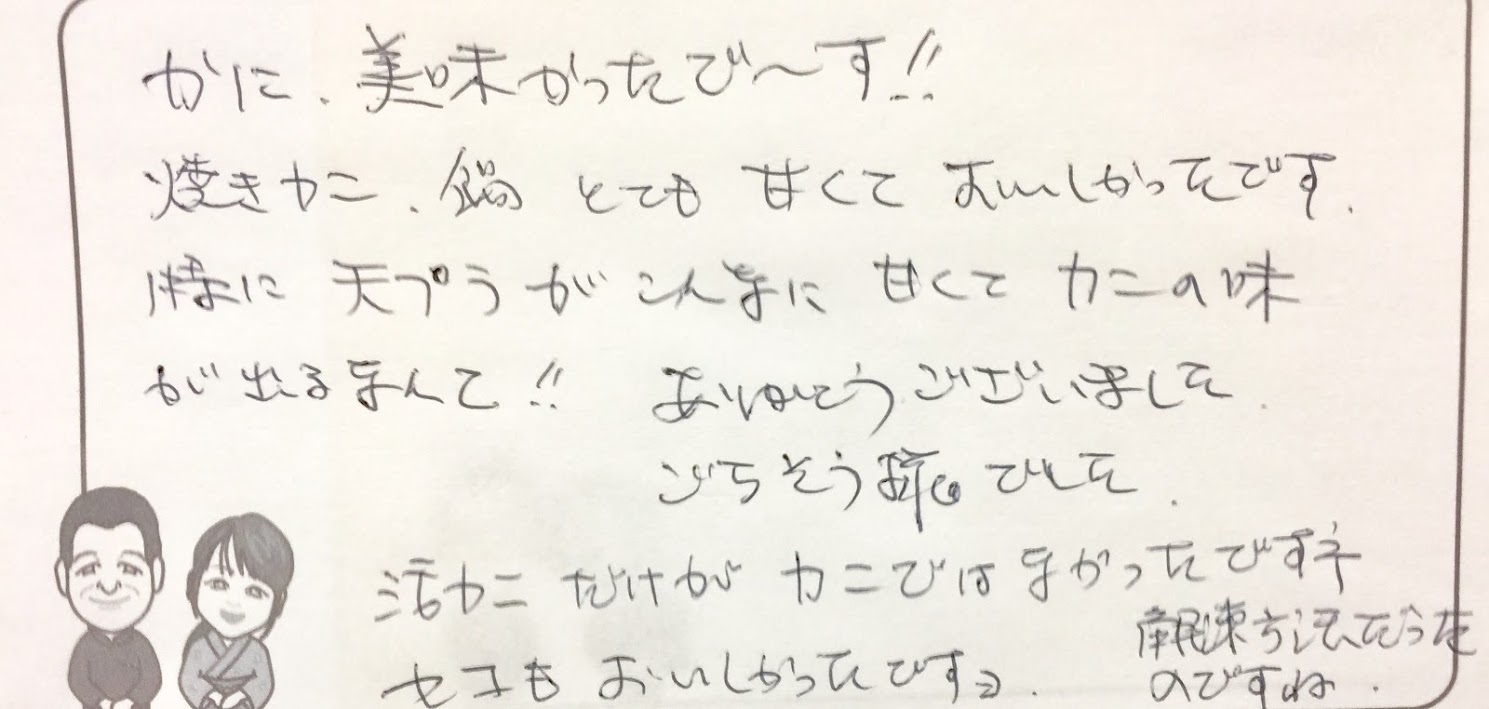 かに、美味かったで〜す!!
焼きカニ、鍋 とても 甘くて おいしかったです.
特に 天プラ が こんなに 甘くて カニの味
が 出るなんて!! ありがとう ございました.
ごちそう様 でした.
活カニ だけが カニでは なかったですネ
解凍方法だった
のですね.
セコも おいしかったですヨ.